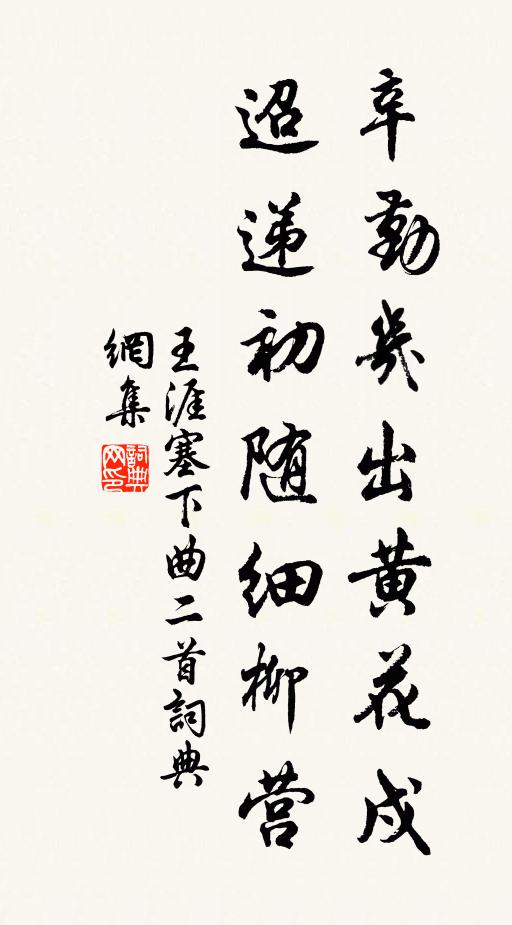 辛勤幾出黄花戍
迢递初随细柳营
王涯塞下曲二首詞典
網集
詞典
网印